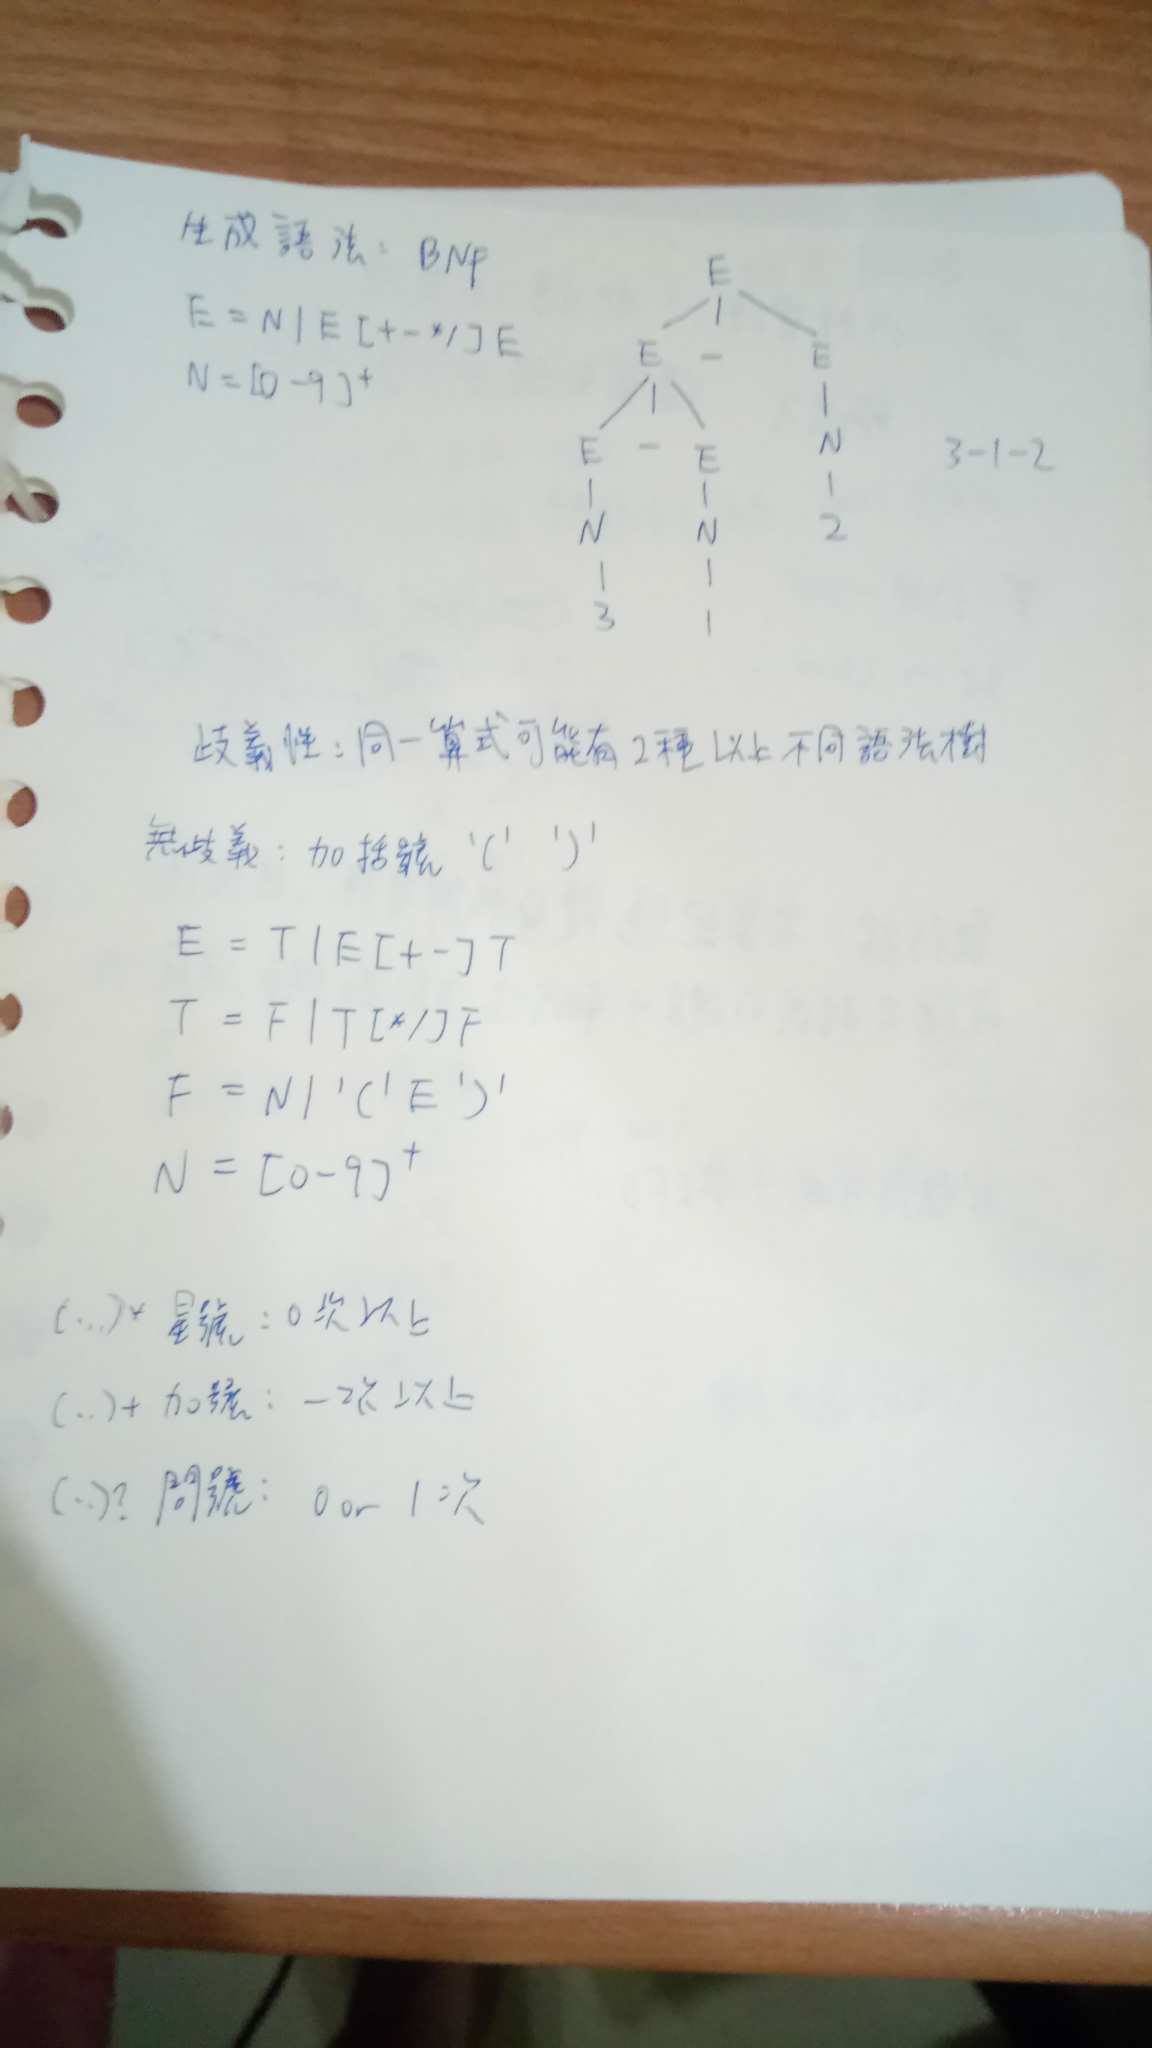 生成語法: BNF
E = N | E [+-*/] E
N = [0-9]+
E
E - E
E - E N
N N 2
3 1
3-1-2
歧義性: 同一算式可能有2種以上不同語法樹
無歧義: 加括號 '(' ')'
E = T | E [+-] T
T = F | T [*/] F
F = N | '(' E ')'
N = [0-9]+
(...)* 星號: 0次以上
(..)+ 加號: 一次以上
(..)? 問號: 0 or 1次